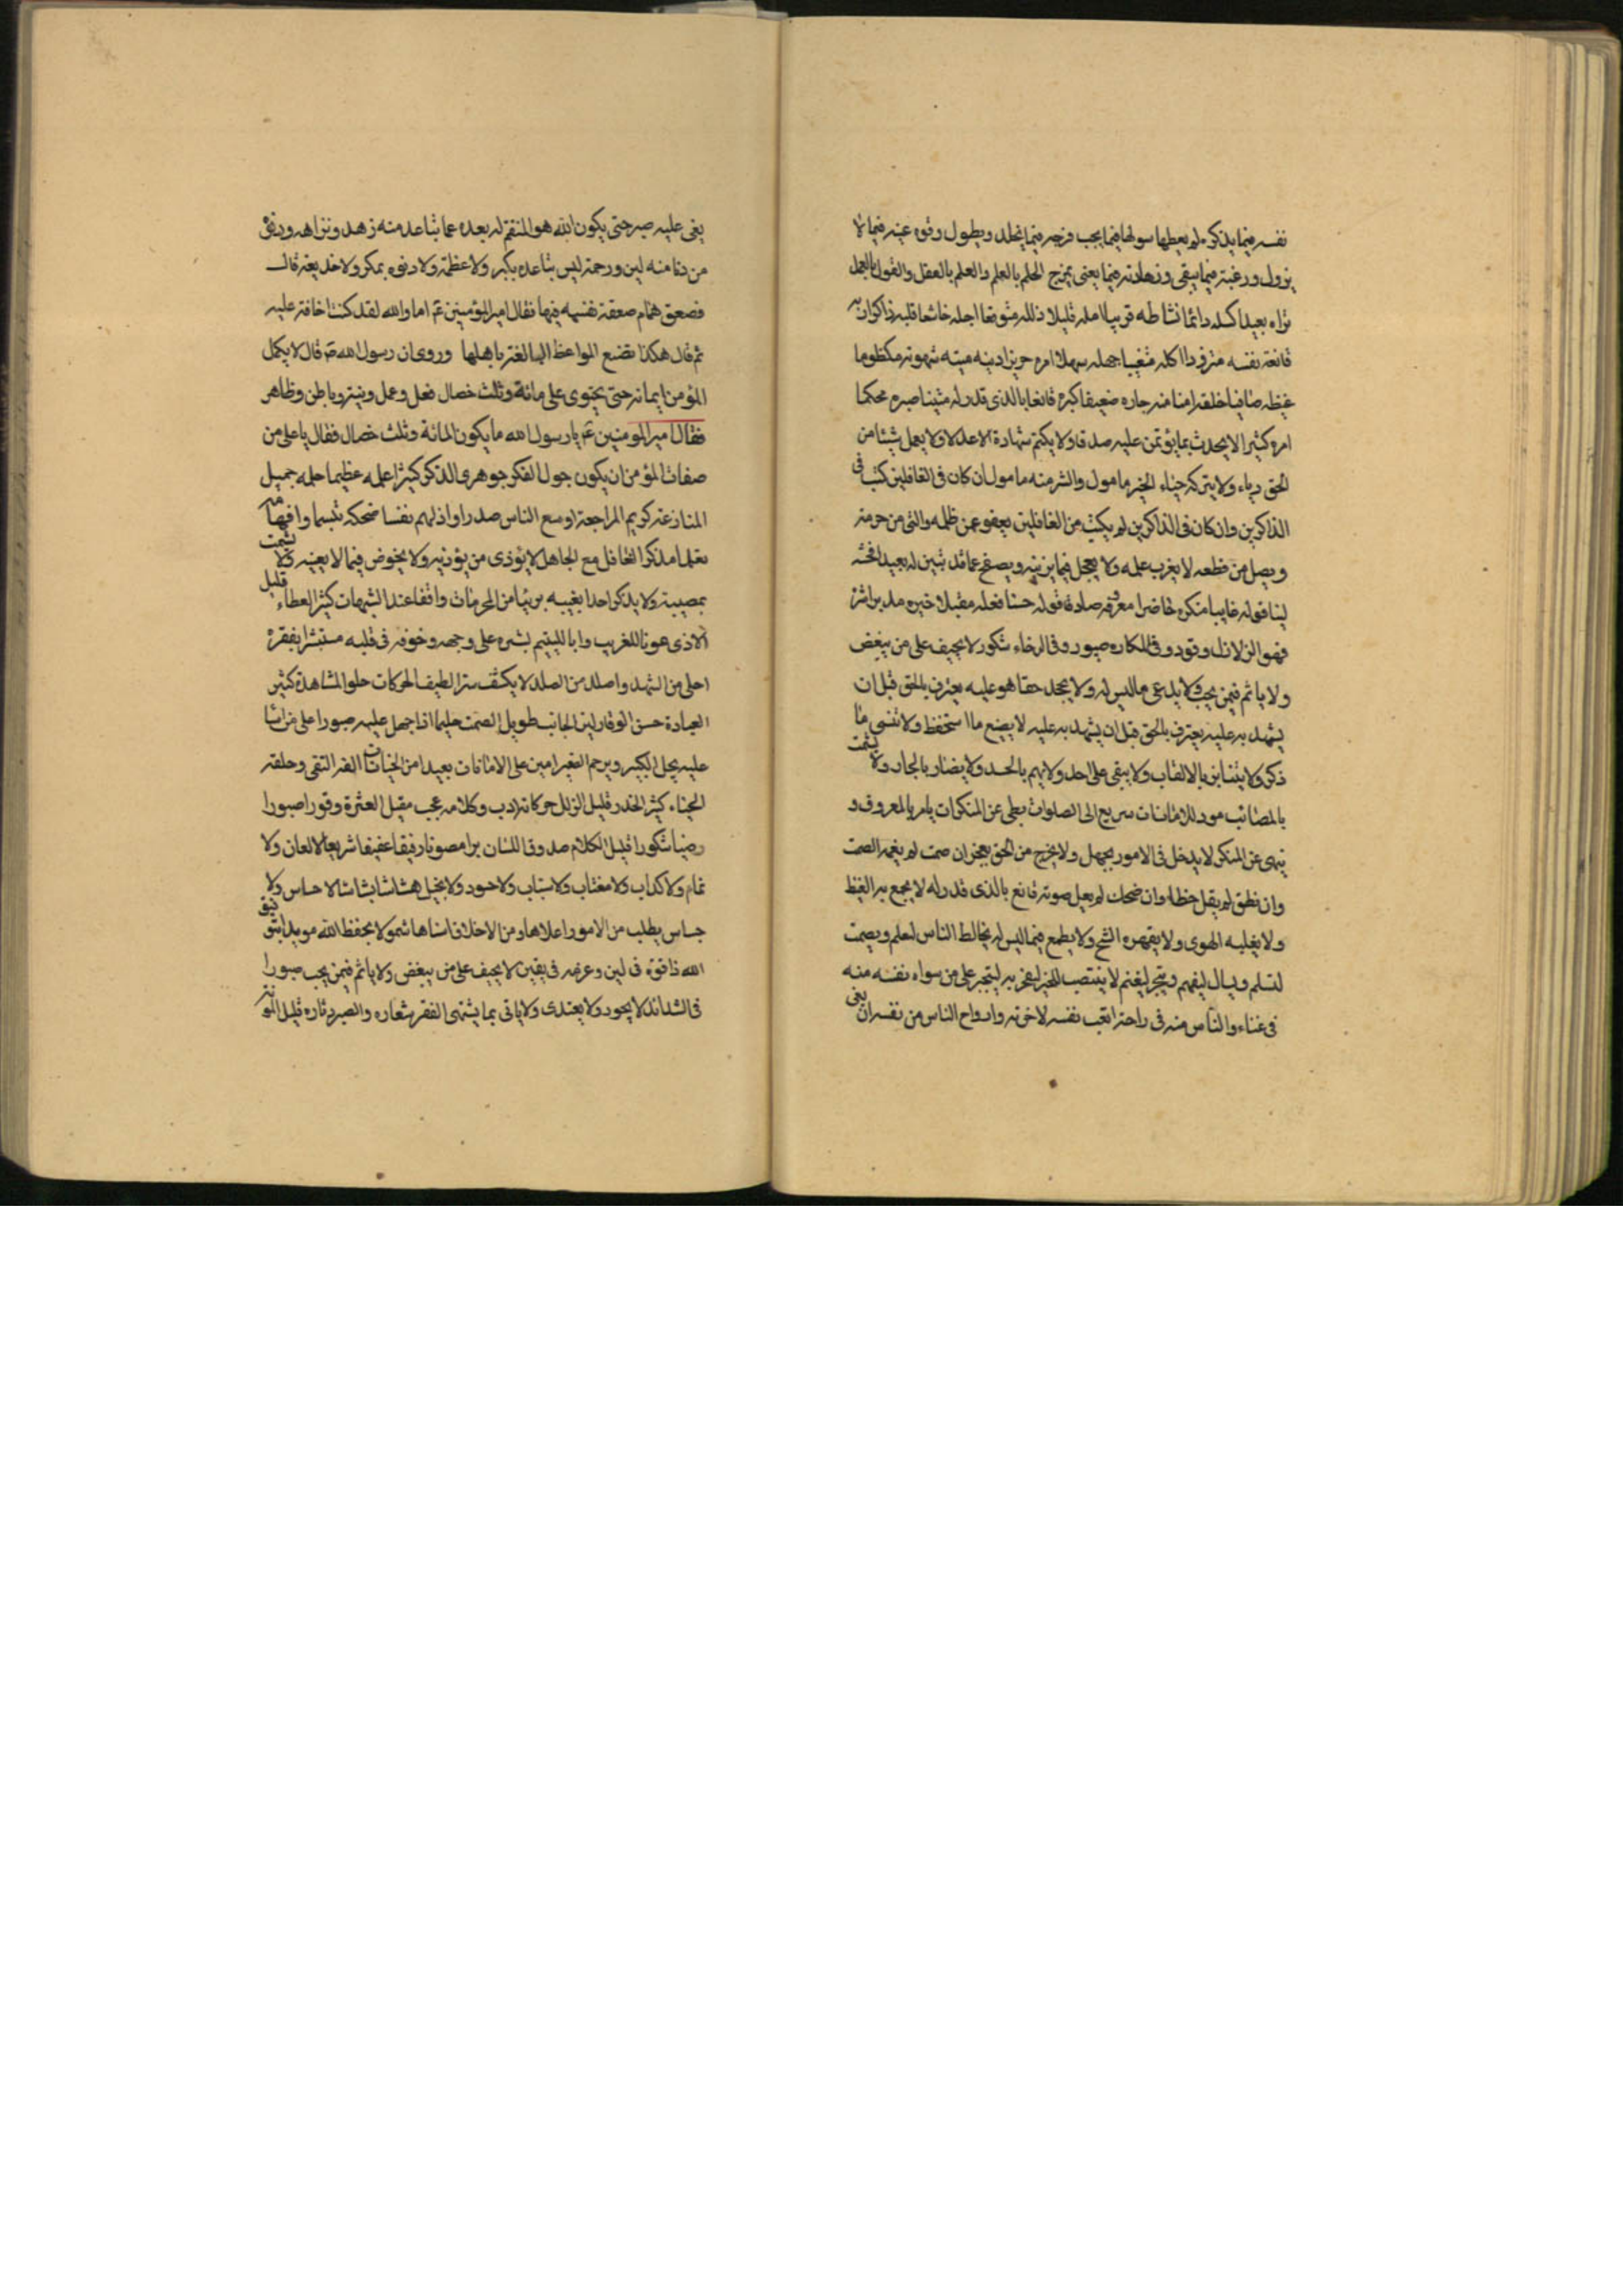 نفسه فيما يذكره لم يعطها سولها فيما يحب فرحه فيما يخلد ويطول وقره عينه فيما لا
يزول ورغبته فيما يبقى وزهادته فيما يفنى يمزج الحلم بالعلم والعلم بالعقل والقول بالعمل
تراه بعيدا كسله دائما نشاطه قريبا امله قليلا ذلله متوقعا اجله خاشعا قلبه ذاكرا ربه
قانعة نفسه منزوردا اكله متغيبا جهله سهلا امره حريزا دينه ميته شهوته مكظوما
غيظه صافيا خلقه امنا منه جاره ضعيفا كبره قانعا بالذى قدر له متينا صبره محكما
امره كثيرا لا يحدث بما يؤتمن عليه صدقا ولا يكتم شهادة الاعدا ولا يعمل شيئا من
الحق رياء ولا يتركه حياء الخير مامول والشر منه مامول ان كان فى الغافلين كتب فى
الذاكرين وان كان فى الذاكرين لم يكتب من الغافلين يعفو عمن ظلمه والتى من حرمته
ويصل من قطعه لا يغرب علمه ولا يعجل فيما يزينه ويصفح عما قد تبين له بعيدا فحشه
لينا قوله غايبا منكره حاضرا معروفه صادقا قوله حسنا فعله مقبلا خيره مدبرا شره
فهو الزلازل وقور وفى المكاره صبور وفى الرخاء شكور لا يحيف على من يبغض
ولا ياثم فيمن يحب ولا يدعى ما ليس له ولا يجحد حقا هو عليه يعترف بالحق قبل ان
يشهد به عليه يعترف بالحق قبل ان يشهد به عليه لا يضيع ما استحفظ ولا تنسى ما
ذكر ولا يتنابز بالالقاب ولا يبغى على احد ولا يهم بالحسد ولا يضار بالجار ولا يشمت
بالمصائب مود للامانات سريع الى الصلوات بطى عن المنكرات يامر بالمعروف و
ينهى عن المنكر لا يدخل فى الامور بجهل ولا يخرج من الحق بعجز ان صمت لم يغمه الصمت
وان نطق لم يقل خطا وان ضحك لم يعل صوته قانع بالذى قدر له لا يجمع به الغيظ
ولا يغلبه الهوى ولا يقهره الشح ولا يطمع فيما ليس له يخالط الناس ليعلم ويصمت
لتسلم ويسال ليفهم ويتجر ليغنم لا ينتصب للخير ليفخر به ليتجبر على من سواه نفسه منه
فى عناء والناس منه فى راحة اتعب نفسه لاخرته وارواح الناس من نفسه ان بغى
بغى عليه صبر حتى يكون الله هو المنتقم له بعده عما تباعد منه زهد ونزاهه ودنوه
من دنا منه لين ورحمة ليس تباعده بكبر ولا عظمة ولا دنوه بمكر ولا خديعة قال
فصعق همام صعقة نفسه فيها فقال امير المؤمنين ع اما والله لقد كنت اخافه عليه
ثم قال هكذا تصنع المواعظ البالغة باهلها وروى ان رسول الله ص قال لا يكمل
المؤمن ايمانه حتى يحتوى على مائة وثلث خصال فعل وعمل ونية وباطن وظاهر
فقال امير المومنين ع يا رسول الله ما يكون المائة وثلث خصال فقال يا على من
صفات المؤمن ان يكون جول الفكر جوهرى الذكر كثيرا علمه عظيما حلمه جميل
المنازعة كريم المراجعة اوسع الناس صدرا واذلهم نفسا ضحكه تبسما وافهامه
تعلما مذكرا الغافل مع الجاهل لا يؤذى من يؤذيه ولا يخوض فيما لا يعنيه ولا يشمت
بمصيبة ولا يذكر احدا بغيبه بريئا من المحرمات واقفا عند الشبهات كثير العطاء قليل
الاذى عونا للغريب وابا لليتيم بشره على وجهه وخوفه فى قلبه مستبشرا بفقره
احلى من الشهد واصلد من الصلد لا يكشف سرا لطيف الحركات حلو المشاهدة كثير
العبادة حسن الوقار لين الجانب طويل الصمت حليما اذا جهل عليه صبورا على من اسا
عليه يجل الكبير ويرحم الصغير امين على الامانات بعيدا من الخيانات الفه التقى وحلفه
الحياء كثير الحذر قليل الزلل حركاته ادب وكلامه عجب مقيل العثرة وقورا صبورا
رضيا شكورا قليل الكلام صدوق اللسان برا مصونا رفيقا عفيفا شريفا لا لعان ولا
نمام ولا كذاب ولا مغتاب ولا سباب ولا حسود ولا بخيل هشاشا بشاشا لا حساس ولا
جساس يطلب من الامور اعلاها ومن الاخلاق اسناها شمولا بحفظ الله مويدا بتوفيق
الله ذا قوة فى لين وعزمه فى يقين لا يحيف على من يبغض ولا ياثم فيمن يحب صبورا
فى الشدائد لا يجور ولا يعتدى ولا ياتى بما يشتهى الفقر شعاره والصبر دثاره قليل المونة